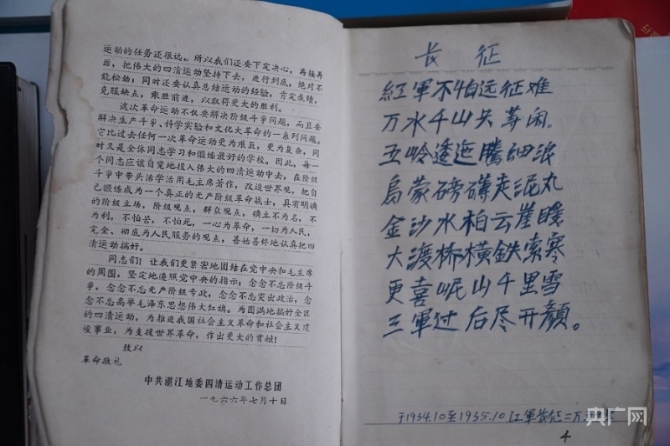 运动的任务还很远。所以我们还要下定决心，再接再
后，把伟大的四清运动坚持下去，进行到底，绝对不
能松劲；同时还要认真总结运动的经验，肯定成绩，
克服缺点，乘胜前进，以取得更大的胜利。
这次革命运动不仅要解决阶级斗争问题，而且要
解决生产斗争、科学实验和文化大革命的一系列问题。
它比过去任何一次革命运动更为艰巨，更为复杂，同
时又是全体同志学习和锻炼最好的学校。因此，每一
个同志应该自觉地投入伟大的四清运动中去，在阶级
斗争中带头活学活用毛主席著作，改造世界观，把自
己锻炼成为一个真正的无产阶级革命战士，具有明确
的阶级立场，阶级观点，群众观点，确立不为名，不
为利，不怕苦，不怕死，一心为革命，一切为人民，
完全、彻底为人民服务的观点，善始善终地认真把四
清运动搞好。
同志们！让我们更紧密地团结在党中央和毛主席
的周围，坚定地遵照党中央的指示，念念不忘阶级斗
争，念念不忘无产阶级专政，念念不忘突出政治，念
念不忘高举毛泽东思想伟大红旗。为圆满地搞好全区
的四清运动，为推进我国社会主义革命和社会主义建
设事业，为支援世界革命，作出更大的贡献！
致以
革命敬礼
中共湛江地委四清运动工作总团
一九六六年七月十日
长征
红軍不怕远征难
万水千山只等闲。
五岭逶迤腾细浪
烏蒙磅礴走泥丸
金沙水拍云崖暖
大渡桥横鉄索寒
更喜岷山千里雪
三軍过后尽开颜。
于1934.10至1935.10.红軍长征二万
4
央广网